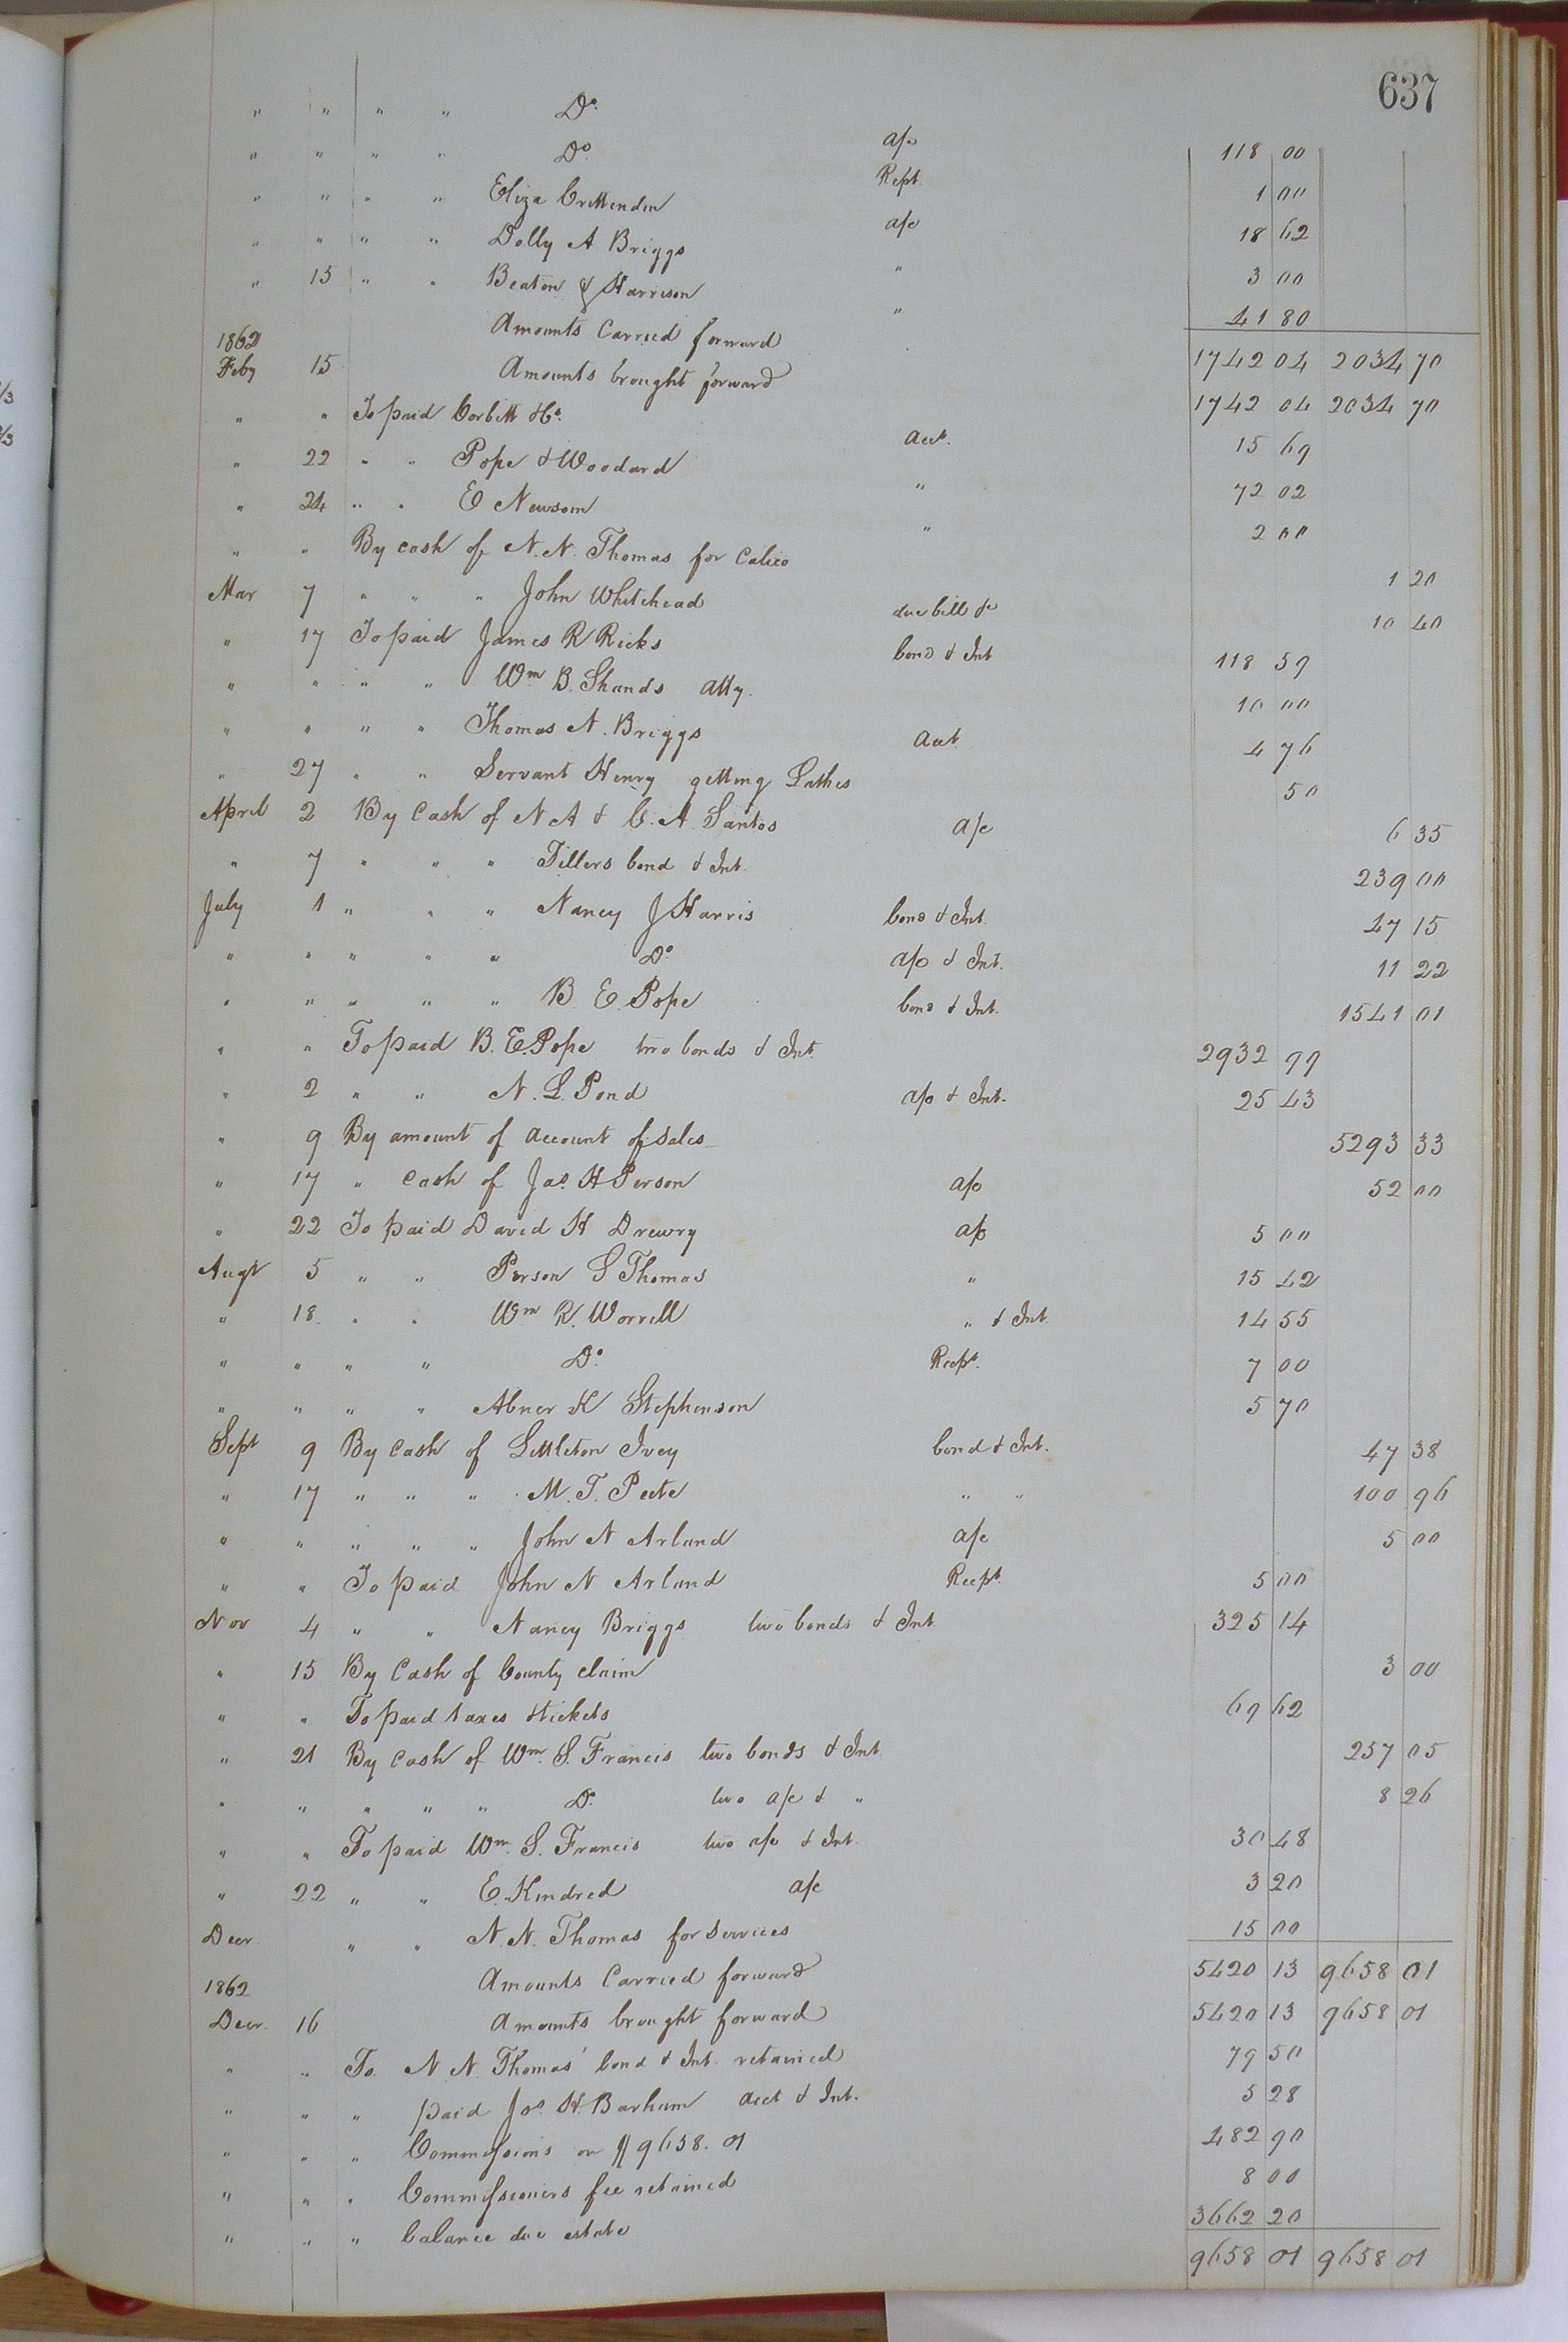 637
" " " " Do. a/c 118 00
" " " " Do. Rept. 1 00
" " " " Eliza Crittenden a/c 18 62
" " " " Dolly A Briggs " 3 00
" 15 " " Beaton & Harrison " 41 80
Amounts Carried forward 1742 04 2034 70
1862
Feby 15 Amounts brought forward 1742 04 2034 70
" " To paid Corbitt & Co. acct. 15 69
" 22 " " Pope & Woodard " 72 02
" 24 " " E Newsom " 2 00
" " By cash of N. N. Thomas for Calico 1 20
Mar 7 " " " John Whitehead due bill &c 10 40
" 17 To paid James R Ricks bond & Int 118 59
" " " " Wm B. Shands atty. 10 00
" " " " Thomas N. Briggs Act 4 76
" 27 " " Servant Henry getting Lathes 50
April 2 By Cash of N A & C. A. Santos a/c 6 35
" 7 " " " Tillers bond & Int. 239 00
July 1 " " " Nancy J Harris bond & Int. 47 15
" " " " " Do. a/c & Int. 11 22
" " " " " B. E. Pope bond & Int. 1541 01
" " To paid B. E. Pope two bonds & Int. 2932 99
" 2 " " N. L. Pond a/c & Int. 25 43
" 9 By amount of account of Sales 5293 33
" 17 " cash of Jas. H Person a/c 52 00
" 22 To paid David H Drewry a/c 5 00
Augt 5 " " Person S Thomas " 15 42
" 18 " " Wm R. Worrell " & Int. 14 55
" " " " Do. Recpt. 7 00
" " " " Abner K Stephenson 5 70
Sept 9 By Cash of Littleton Ivey bond & Int. 47 38
" 17 " " " M. T. Peete " " 100 96
" " " " " John N Arland a/c 5 00
" " To paid John N Arland Recpt. 5 00
Nov 4 " " Nancy Briggs two bonds & Int. 325 14
" 15 By Cash of County claim 3 00
" " To paid taxes & tickets 69 62
" 21 By Cash of Wm. S. Francis two bonds & Int 257 05
" " " " " Do. two a/c & " 8 26
" " To paid Wm. S. Francis two a/c & Int. 30 48
" 22 " " E. Kindred a/c 3 20
Decr. " " N. N. Thomas for Services 15 00
Amounts Carried forward 5420 13 9658 01
1862
Decr. 16 Amounts brought forward 5420 13 9658 01
" " To N N. Thomas' bond & Int. retained 79 50
" " " paid Jos. H. Barham acct & Int. 5 28
" " " Commissions on $9658.01 482 90
" " " Commissioners fee retained 8 00
" " " balance due estate 3662 20
9658 01 9658 01